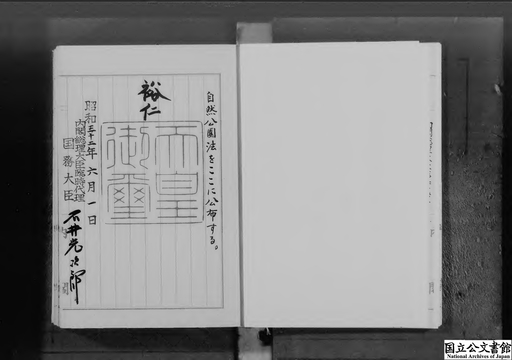 自然公園法をここに公布する。
裕仁
天皇
御璽
昭和三十二年六月一日
内閣総理大臣臨時代理
国務大臣 石井光次郎
国立公文書館
National Archives of Japan